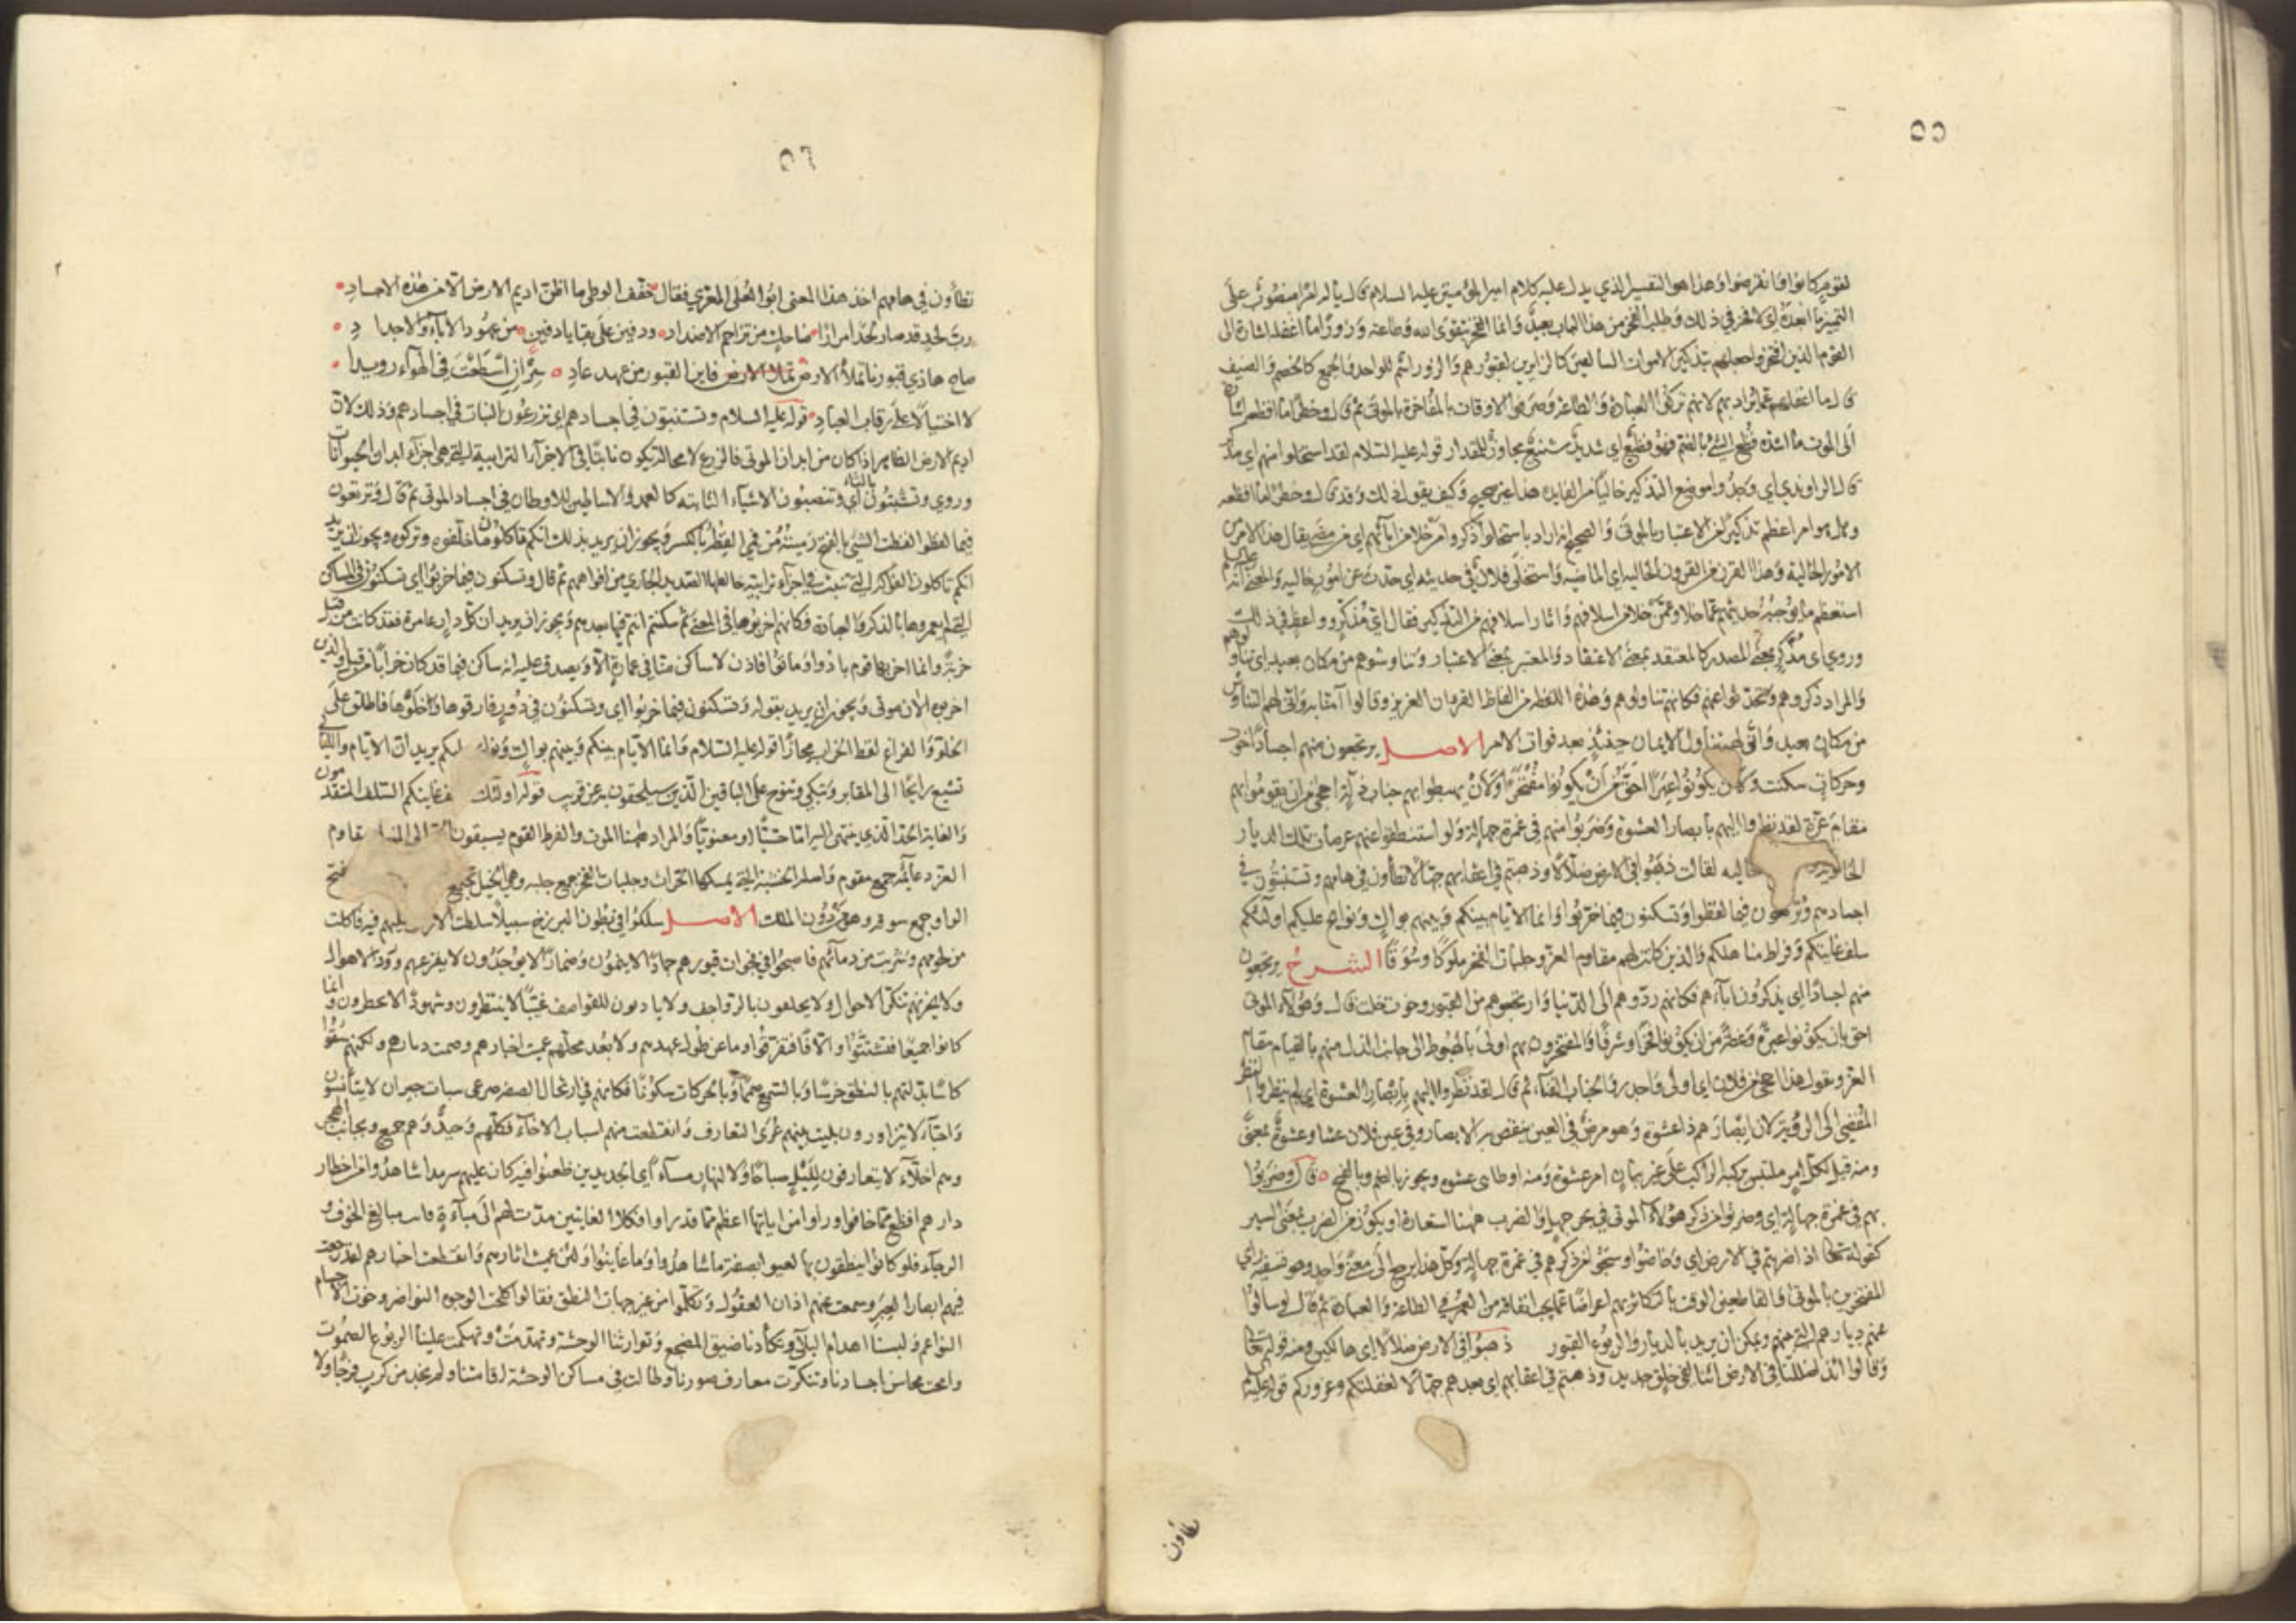 ٥٥
لقوم كانوا فانقرضوا وهذا هو التفسير الذي يدل عليه كلام امير المؤمنين عليه السلام قال ياله مراما منصوب على
التمييز ما ابعده اي لا فخر في ذلك وطلب الفخر من هذا الباب بعيد وانما الفخر بتقوى الله وطاعته وزورا ما اغفله اشارة الى
القوم الذين افتخروا جعلهم بتذكير الاموات السالفين كالزايرين لقبورهم والزور اسم للواحد والجمع كالخصم والضيف
قال ما اغفلهم عما يراد بهم لانهم تركوا العبادة والطاعة وصرموا الاوقات بالمفاخرة بالموتى ثم قال وخطرا ما افظعه اشارة
الى الموت ما اشده فظع الشي بالضم فهو فظيع اي شديد شنيع مجاوز للمقدار قوله عليه السلام لقد استخلوا منهم اي مدكر
قال الراوندي اي وجدوا موضع التذكير خاليا من الفايدة هذا غير صحيح وكيف يقول ذلك وقد قال وخطرا ما افظعه
وهل هو امر اعظم تذكيرا من الاعتبار بالموتى والصحيح انه اراد باستخلوا ذكروا من خلا من ابائهم اي من مضى يقال هذا الامر من
الامور الخالية وهذا القرن من القرون الخالية اي الماضية واستخلى فلان في حديثه اي حدث عن امور خالية والمعنى انه
استعظم ما يوجبه حديثهم عما خلا وعمن خلا من اسلافهم واثار اسلافهم من التذكير فقال اي مذكر وواعظ في ذلك
وروي اي مذكر بمعنى المصدر كالمعتقد بمعنى الاعتقاد والمعتبر بمعنى الاعتبار وتناوشوهم من مكان بعيد اي تناولوهم
والمراد ذكروهم وتحدثوا عنهم فكانهم تناولوهم وهذه اللفظة من الفاظ القران العزيز وقالوا آمنا به وانى لهم التناوش
من مكان بعيد وانى لهم تناول الايمان حينئذ بعد فوات الامر الاصل يرتجعون منهم اجسادا خوت
وحركات سكنت ولان يكونوا عبرا احق من ان يكونوا مفتخرا ولان يهبطوا بهم جناب ذلة احجى من ان يقوموا بهم
مقام عزة لقد نظروا اليهم بابصار العشوة وضربوا منهم في غمرة جهالة ولو استنطقوا عنهم عرصات تلك الديار
الخاوية خاليه لقالت ذهبوا في الارض ضلالا وذهبتم في اعقابهم جهالا تطأون في هامهم وتستنبتون في
اجسادهم وترتعون فيما لفظوا وتسكنون فيما خربوا وانما الايام بينكم وبينهم بواك ونوائح عليكم اولئكم
سلف غايتكم وفراط مناهلكم والذين كانت لهم مقاوم العز وحلبات الفخر ملوكا وسوقا الشرح يرتجعون
منهم اجسادا اي يذكرون اباءهم فكانهم ردوهم الى الدنيا وارتجعوهم من القبور وخوت خلت قال وهؤلاء الموتى
احق بان يكونوا عبرة وعظة من ان يكونوا فخرا وشرفا والمفتخرون بهم اولى بالهبوط الى جانب الذل منهم بالقيام مقام
العز وتقول هذا احجى من فلان اي اولى واجدر والجناب الفناء ثم قال لقد نظروا اليهم بابصار العشوة اي لم ينظروا النظر
المفضي الى الرؤية لان ابصارهم ذا عشوة وهو مرض في العين ينقص به الابصار وفي عين فلان عشا وعشوة بمعنى
ومنه قيل لكل امر ملتبس يركبه الراكب على غير بيان امر عشوة ومنه اوطاتني عشوه ويجوز بالضم وبالفتح قال وضربوا
بهم في غمرة جهالة اي وضربوا من ذكر هؤلاء الموتى في بحر جهل والضرب ههنا استعارة او يكون من الضرب بمعنى السير
كقوله تعالى اذا ضربتم في الارض اي وخاضوا وسبحوا من ذكرهم في غمرة جهالة وكل هذا يرجع الى معنى واحد وهو تسفيه راي
المفتخرين بالموتى والقاطعين الوقت بالتكاثر بهم اعراضا عما يجب انفاقه من العمر في الطاعة والعبادة ثم قال لو سالوا
عنهم ديارهم التي منهم ويمكن ان يريد بالديار والربوع القبور ذهبوا في الارض ضلالا اي هالكين ومنه قوله تعالى
وقالوا ائذا ضللنا في الارض ائنا لفي خلق جديد وذهبتم في اعقابهم اي بعدهم جهالا لغفلتكم وغروركم قوله عليه
تطأون
٥٦
تطأون في هامهم اخذ هذا المعنى ابو العلى المعري فقال خفف الوطى ما اظن اديم الارض الا من هذه الاجساد
رب لحد قد صار لحدا مرارا ضاحك من تزاحم الاضداد ودفين على بقايا دفين من عهود الاباء والاجداد
صاح هاذي قبورنا تملأ الارض فاين القبور من عهد عاد سر ان اسطعت في الهواء رويدا
لا اختيالا على رقاب العباد قوله عليه السلام وتستنبتون في اجسادهم اي تزرعون النبات في اجسادهم وذلك لان
اديم الارض الظاهر اذا كان من ابدان الموتى فالزرع لا محالة يكون نابتا في الاجزاء الترابية التي هي اجزاء ابدان الحيوانات
وروي وتستثبتون بالثاء اي وتنصبون الاشياء الثابته كالعمد والاساطين للاوطان في اجساد الموتى ثم قال وترتعون
فيما لفظوا لفظت الشي بالفتح رميته من فمي الفظه بالكسر ويجوز ان يريد بذلك انكم تاكلون ما خلفوه وتركوه ويجوز ان يريد
انكم تاكلون الفواكه التي تنبت في اجزاء ترابية خالطها الصديد الجاري من افواههم ثم قال وتسكنون فيما خربوا اي تسكنون في المساكن
التي لم يعمروها بالذكر والعبادة فكانهم اخربوها في المعنى ثم سكنتم انتم فيها بعدهم ويجوز ان يريد ان كل دار عامرة فقد كانت من قبل
خربة وانما اخربها قوم بادوا وماتوا فاذن لا ساكن منا في عمارة الا ويصدق عليه انه ساكن فيما قد كان خرابا من قبل والذين
اخربوه الان موتى ويجوز ان يريد بقوله وتسكنون فيما خربوا اي وتسكنون في دور فارقوها واخلوها فاطلق على
الخلو والفراغ لفظ الخراب مجازا قوله عليه السلام وانما الايام بينكم وبينهم بواك ونوائح عليكم يريد ان الايام والليالي
تشيع رايحا الى المقابر وتبكي وتنوح على الباقين الذين سيلحقون به عن قريب قوله اولئك سلف غايتكم السلف المتقدمون
والغاية الحد الذي ينتهى اليه اما حسيا او معنويا والمراد ههنا الموت والفرط القوم يسبقون الى المنهل ومقاوم
العز دعائمه جمع مقوم واصلها الخشبة التي يمسكها الحراث وحلبات الفخر جمع حلبه وهي الخيل تجمع بفتح
الواو جمع سوقه وهو من دون الملك الاصل سلكوا في بطون البرزخ سبيلا سلطت الارض عليهم فيه فاكلت
من لحومهم وشربت من دمائهم فاصبحوا في فجوات قبورهم جمادا لا ينمون وضمارا لا يوجدون لا يفزعهم ورود الاهوال
ولا يحزنهم تنكر الاحوال ولا يحفلون بالرواجف ولا ياذنون للقواصف غيبا لا ينتظرون وشهودا لا يحضرون وانما
كانوا جميعا فتشتتوا والافا فتفرقوا وما عن طول عهدهم ولا بعد محلهم عميت اخبارهم وصمت ديارهم ولكنهم سقوا
كاسا بدلتهم بالنطق خرسا وبالسمع صمما وبالحركات سكونا فكانهم في ارتجال الصفة صرعى سبات جيران لا يتأنسون
واحباء لا يتزاورون بليت بينهم عرى التعارف وانقطعت منهم اسباب الاخاء فكلهم وحيد وهم جميع وبجانب الهجر
وهم اخلاء لا يتعارفون لليل صباحا ولا لنهار مساء اي الجديدين ظعنوا فيه كان عليهم سرمدا شاهدوا من اخطار
دارهم افظع مما خافوا وراوا من اياتها اعظم مما قدروا وفكلا الغايتين مدت لهم الى مباءة فاتت مبالغ الخوف و
الرجاء فلو كانوا ينطقون بها لعيوا بصفة ما شاهدوا وما عاينوا ولئن عميت اثارهم وانقطعت اخبارهم لقد رجعت
فيهم ابصار العبر وسمعت عنهم اذان العقول وتكلموا من غير جهات النطق فقالوا كلحت الوجوه النواضر وخوت الاجسام
النواعم ولبسنا اهدام البلى وتكأدنا ضيق المضجع وتوارثنا الوحشة وتهدمت وتهكمت علينا الربوع الصموت
وامحت محاسن اجسادنا وتنكرت معارف صورنا وطالت في مساكن الوحشة اقامتنا ولم نجد من كرب فرجا ولا